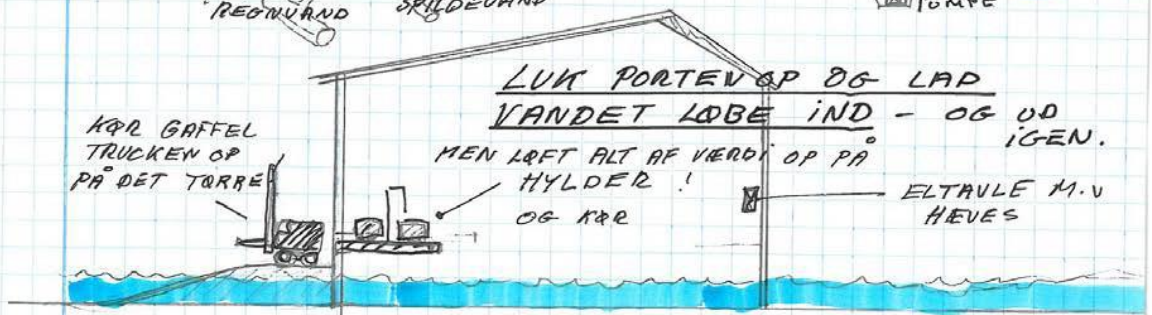 REGNVAND SPILDEVAND PUMPE
LUK PORTEN OP OG LAD
VANDET LØBE IND - OG UD
IGEN.
KØR GAFFEL
TRUCKEN OP
PÅ DET TØRRE
MEN LØFT ALT AF VÆRDI OP PÅ
HYLDER !
OG KØR
ELTAVLE M.V
HÆVES